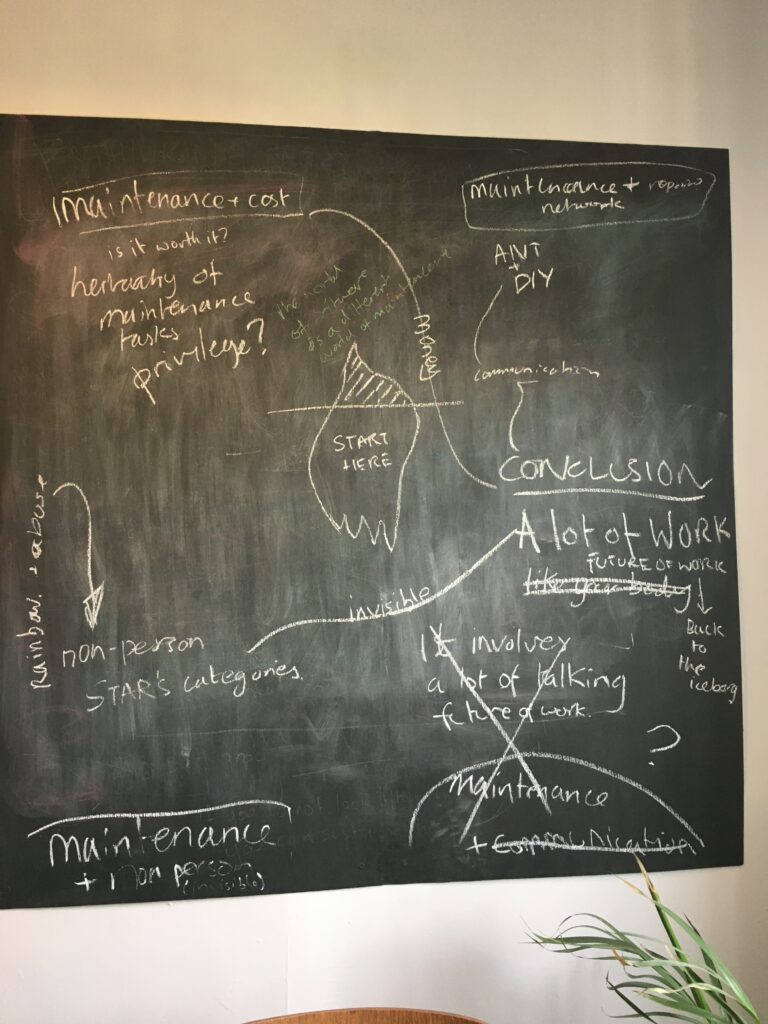 maintenance + cost
is it worth it?
heriarchy of
maintenance
tasks
privilege?
the world
of software
is a different
world of maintenance
money
maintenance +
network
ANT
+
DIY
communication
START
HERE
CONCLUSION
A lot of WORK
FUTURE OF WORK
like your body
Back
to
the
iceberg
invisible
Rainbow. + abuse
non-person
STAR'S categories.
It involves
a lot of talking
future of work.
?
maintenance
+ communication
maintenance
+ non person
(invisible)